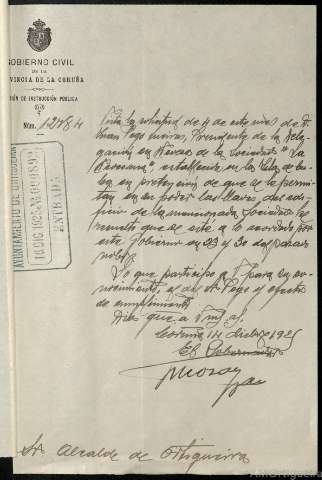 GOBIERNO CIVIL
DE LA
VINCIA DE LA CORUÑA
IÓN DE INSTRUCCIÓN PÚBLICA
Núm. 12484
AYUNTAMIENTO DE ORTIGUEIRA
16 DIC 1925
ENTRADA
Vista la solicitud de 4 de este mes de D.
Presidente de la Dele-
gación en de la Sociedad "La
", establecida en la Isla de Cu-
ba en pretensión de que se le permi-
tan en su poder las llaves del edi-
ficio de la mencionada Sociedad, he
resuelto que se esté a lo acordado por
este Gobierno en 23 y 30 del pasado
Lo que participo a V. para su co-
nocimiento, el del Sr. Pego y efectos
de cumplimiento
Dios gue. a V. m. a.
Coruña 14 dicbre 1925
El Gobernador
Sr. Alcalde de Ortigueira